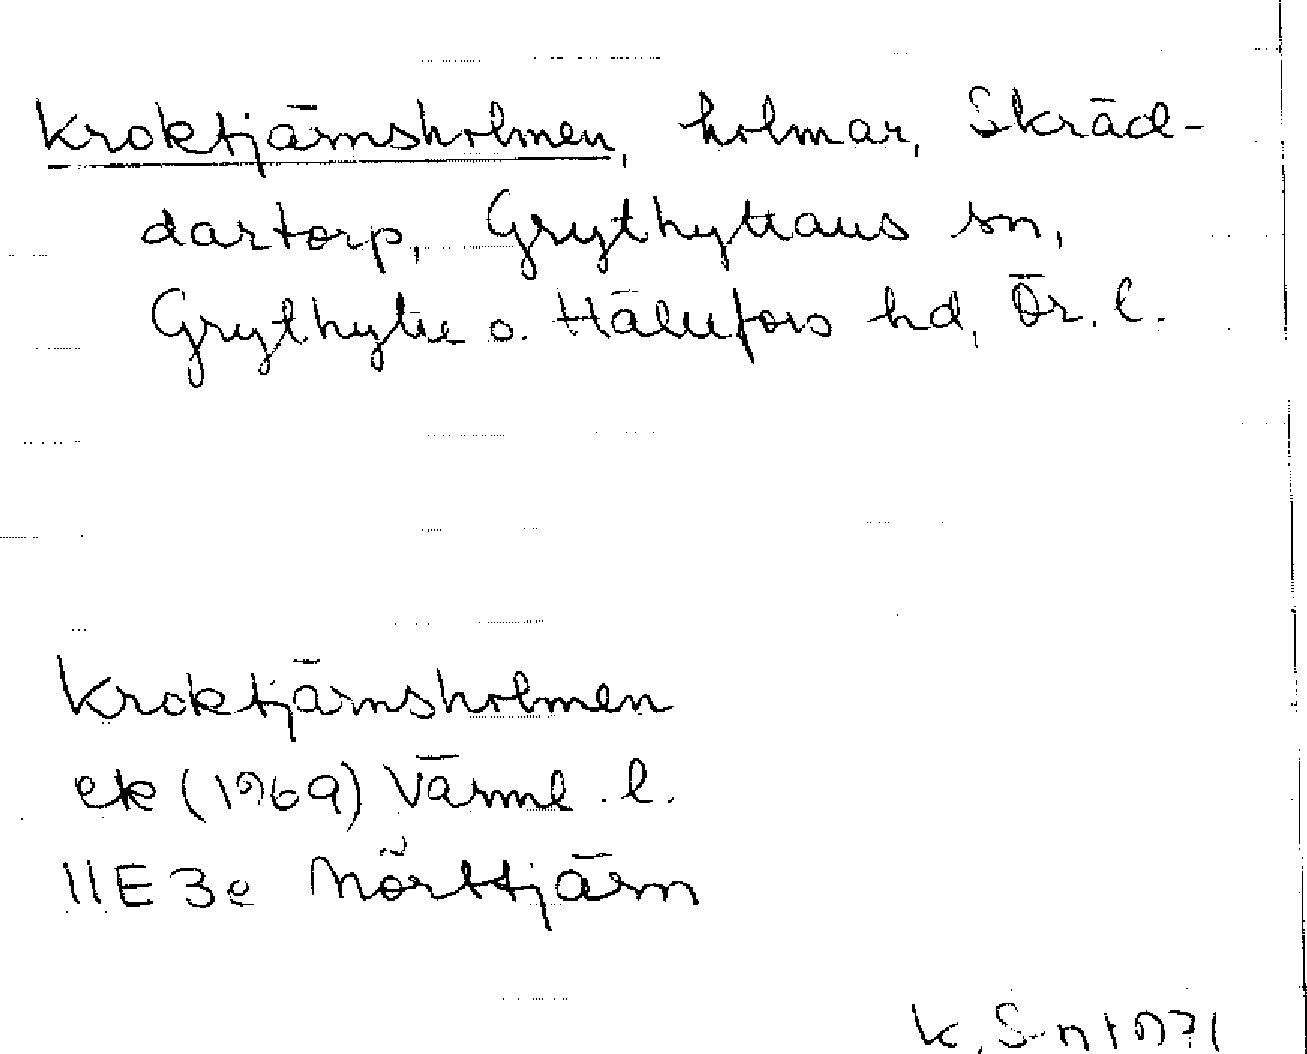 Kroktjärnsholmen, holmar, Skräd-
dartorp, Grythyttans sn,
Grythytte o. Hällefors hd, Ör. l.
Kroktjärnsholmen
ek (1969) Värml. l.
11E 3e Mörttjärn
K. S-n 1971